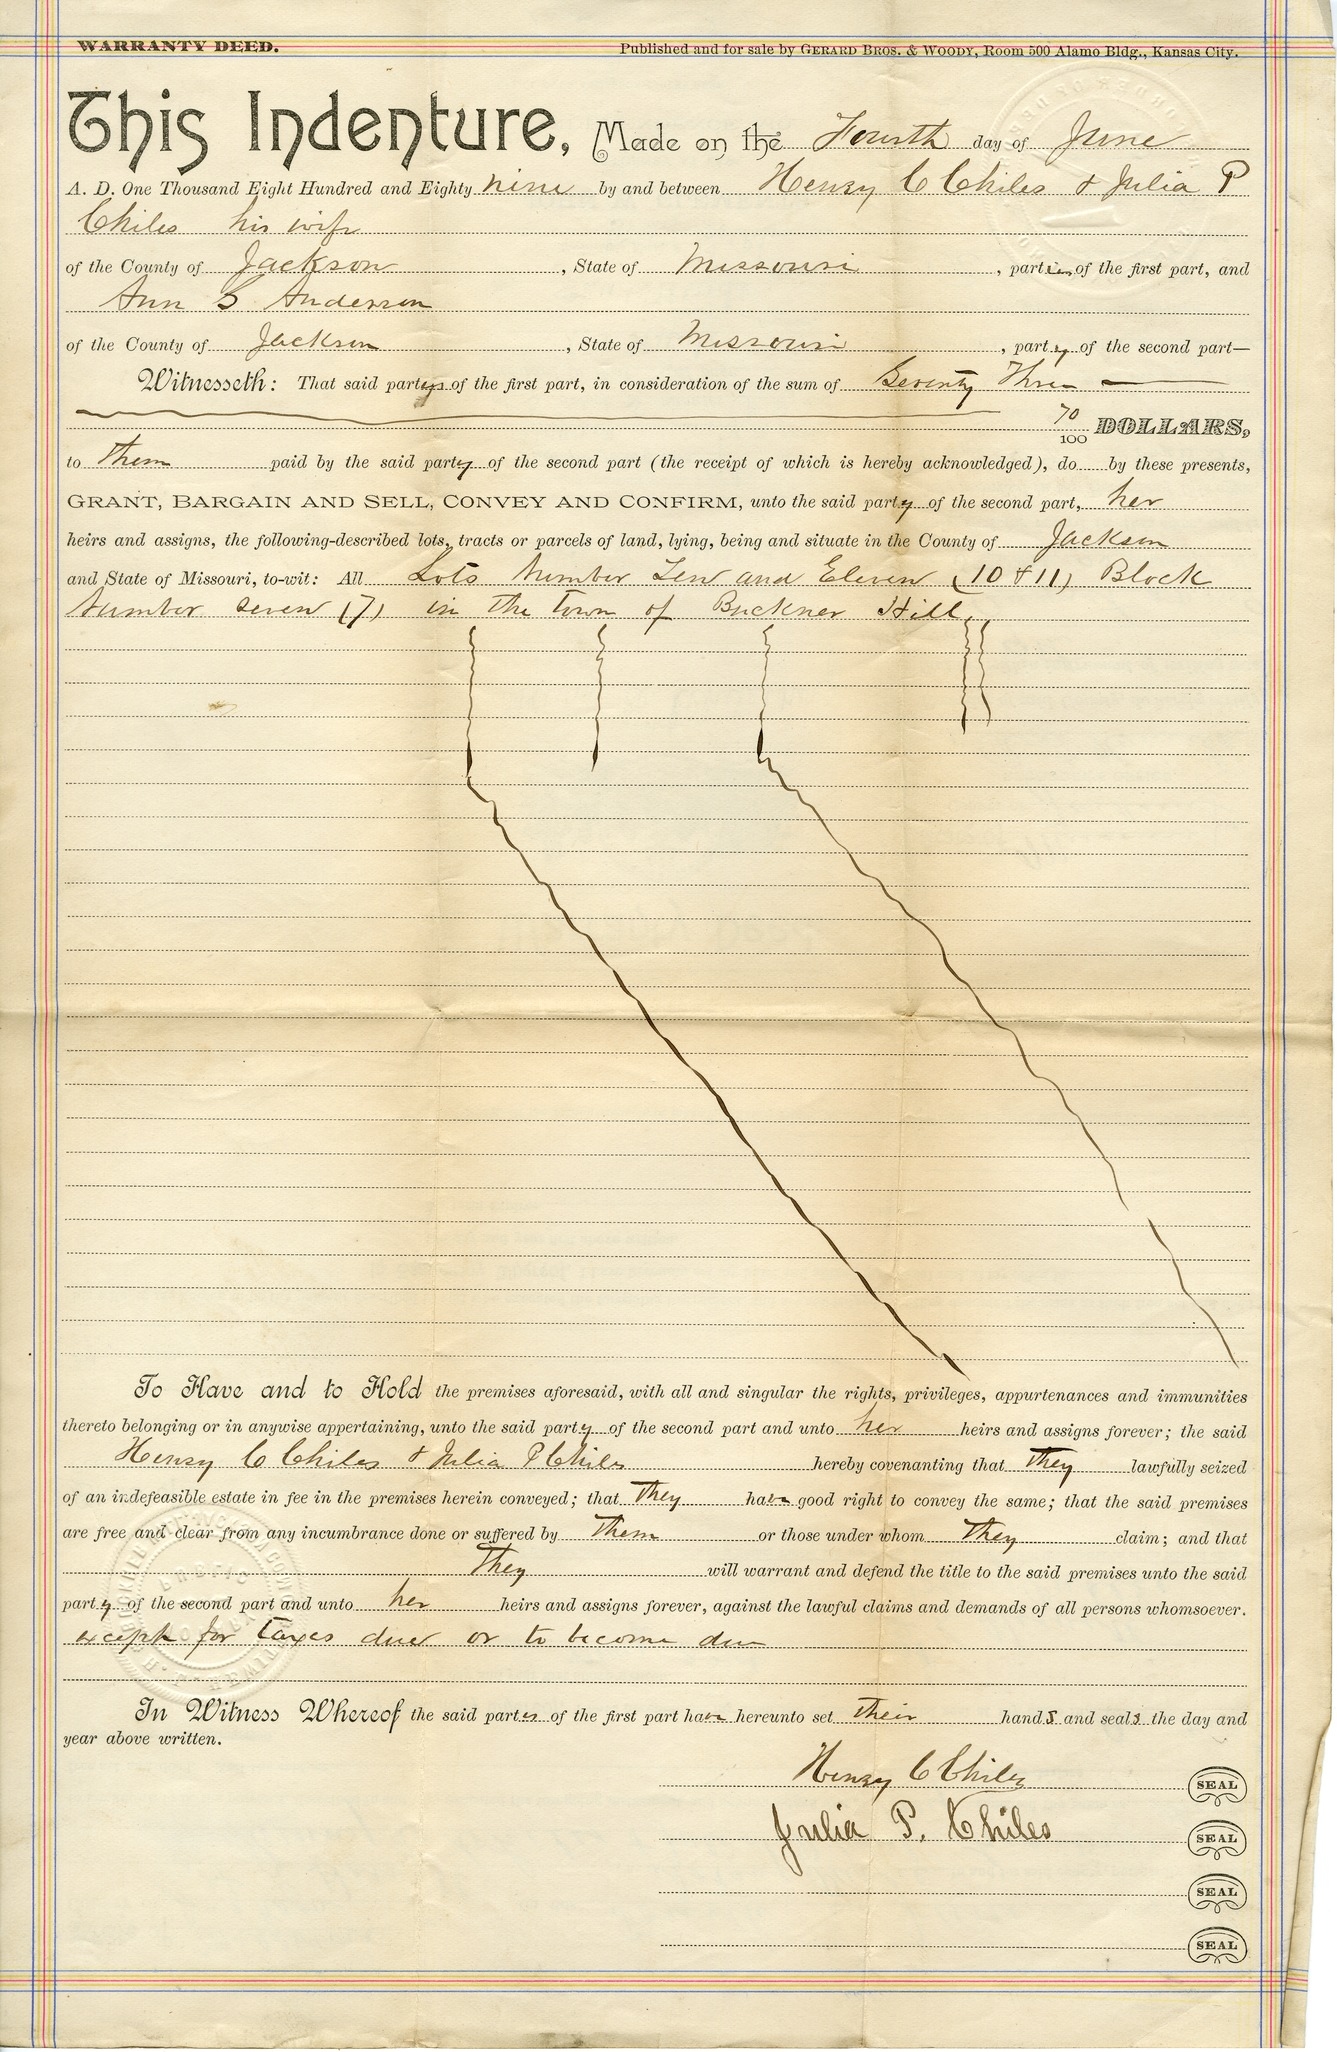 WARRANTY DEED.
Published and for sale by GERARD BROS. & WOODY, Room 500 Alamo Bldg., Kansas City.
This Indenture, Made on the Fourth day of June
A. D. One Thousand Eight Hundred and Eighty nine by and between Henry C Chiles & Julia P
Chiles his wife
of the County of Jackson, State of Missouri, parties of the first part, and
Ann S Anderson
of the County of Jackson, State of Missouri, party of the second part—
Witnesseth: That said partys of the first part, in consideration of the sum of Seventy Three
70/100 DOLLARS,
to them paid by the said party of the second part (the receipt of which is hereby acknowledged), do by these presents,
GRANT, BARGAIN AND SELL, CONVEY AND CONFIRM, unto the said party of the second part, her
heirs and assigns, the following-described lots, tracts or parcels of land, lying, being and situate in the County of Jackson
and State of Missouri, to-wit: All Lots Number Ten and Eleven (10 & 11) Block
Number seven (7) in the town of Buckner Hill
To Have and to Hold the premises aforesaid, with all and singular the rights, privileges, appurtenances and immunities
thereto belonging or in anywise appertaining, unto the said party of the second part and unto her heirs and assigns forever; the said
Henry C Chiles & Julia P Chiles hereby covenanting that they lawfully seized
of an indefeasible estate in fee in the premises herein conveyed; that they have good right to convey the same; that the said premises
are free and clear from any incumbrance done or suffered by them or those under whom they claim; and that
they will warrant and defend the title to the said premises unto the said
party of the second part and unto her heirs and assigns forever, against the lawful claims and demands of all persons whomsoever.
except for taxes due or to become due
In Witness Whereof the said parties of the first part have hereunto set their hands and seals the day and
year above written.
Henry C Chiles SEAL
Julia P. Chiles SEAL
SEAL
SEAL